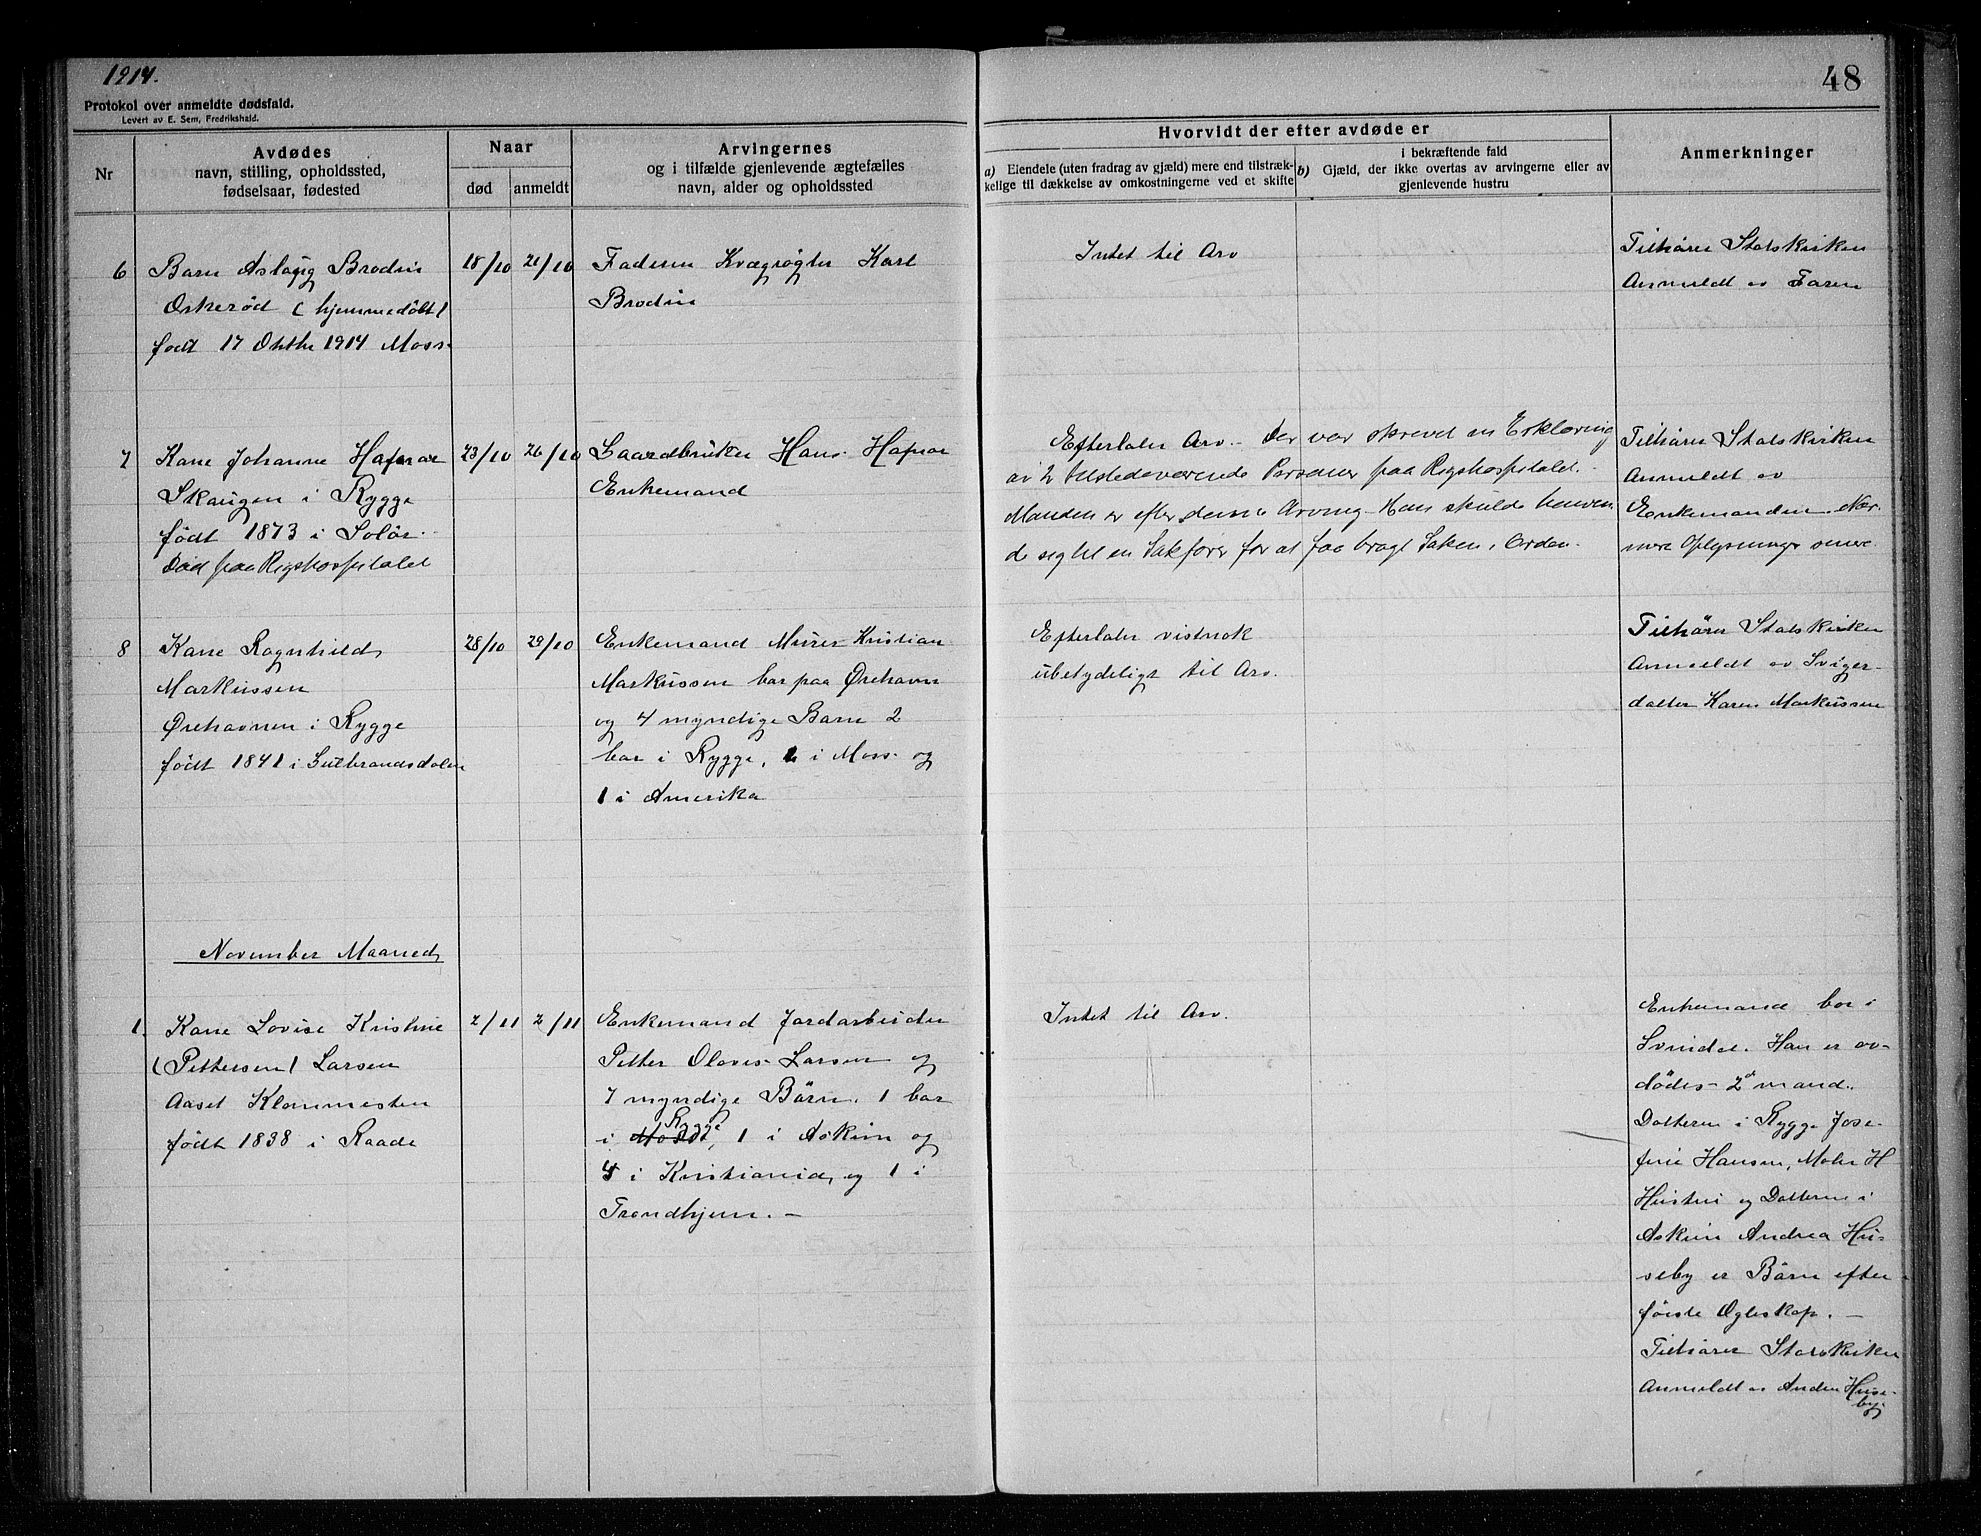 1914.
48
Protokol over anmeldte dødsfald.
Levert av E. Sem, Fredrikshald.
Nr
Avdødes
navn, stilling, opholdssted,
fødselsaar, fødested
Naar
død
anmeldt
Arvingernes
og i tilfælde gjenlevende ægtefælles
navn, alder og opholdssted
Hvorvidt der efter avdøde er
a) Eiendele (uten fradrag av gjæld) mere end tilstræk-
kelige til dækkelse av omkostningerne ved et skifte
i bekræftende fald
b) Gjæld, der ikke overtas av arvingerne eller av
gjenlevende hustru
Anmerkninger
6
Barn Aslaug Brodin
Oskerød (hjemmedöbt)
født 17 Oktbr 1914 Moss
18/10
21/10
Faderen Kvægrøgter Karl
Brodin
Intet til Arv
Tilhører Statskirken
Anmeldt av Faren
7
Kone Johanne Hafnor
Skaugen i Rygge
født 1873 i Solör.
Död paa Rigshospitalet
23/10
26/10
Gaardbruker Hans Hafnor
Enkemand
Efterlater Arv. Der var skrevet en Erklæring
av 2 tilstedeværende Personer paa Rigshospitalet.
Manden er efter denne Arving. Han skulde henven
de sig til en Sakfører for at faa bragt Saken i Orden.
Tilhører Statskirken
Anmeldt av
Enkemanden. Nær-
mere Oplysninger senere
8
Kone Ragnhild
Markussen
Ørehavnen i Rygge
født 1841 i Gulbrandsdalen
28/10
29/10
Enkemand Murer Kristian
Markussen bor paa Ørehavn
og 4 myndige Barn 2
bor i Rygge, 1 i Moss og
1 i Amerika
Efterlater vistnok
ubetydeligt til Arv.
Tilhører Statskirken
Anmeldt av Sviger-
datter Karen Markussen
November Maaned
1.
Kone Lovise Kristine
(Pettersen) Larsen
Aaset Klommesten
født 1838 i Raade
2/11
2/11
Enkemand Jordarbeider
Petter Olaves Larsen og
7 myndige Börn. 1 bor
i Rygge, 1 i Askim og
4 i Kristiania, og 1 i
Trondhjem. —
Intet til Arv.
Enkemand bor i
Svindal. Han er av-
dödes 2d mand.
Datteren i Rygge Jose-
fine Hansen, Maler H
Hustru og Datteren i
Askim Andrea Hu-
seby er Börn efter
første Egteskap. —
Tilhører Statskirken
Anmeldt av Andrea Huse-
by